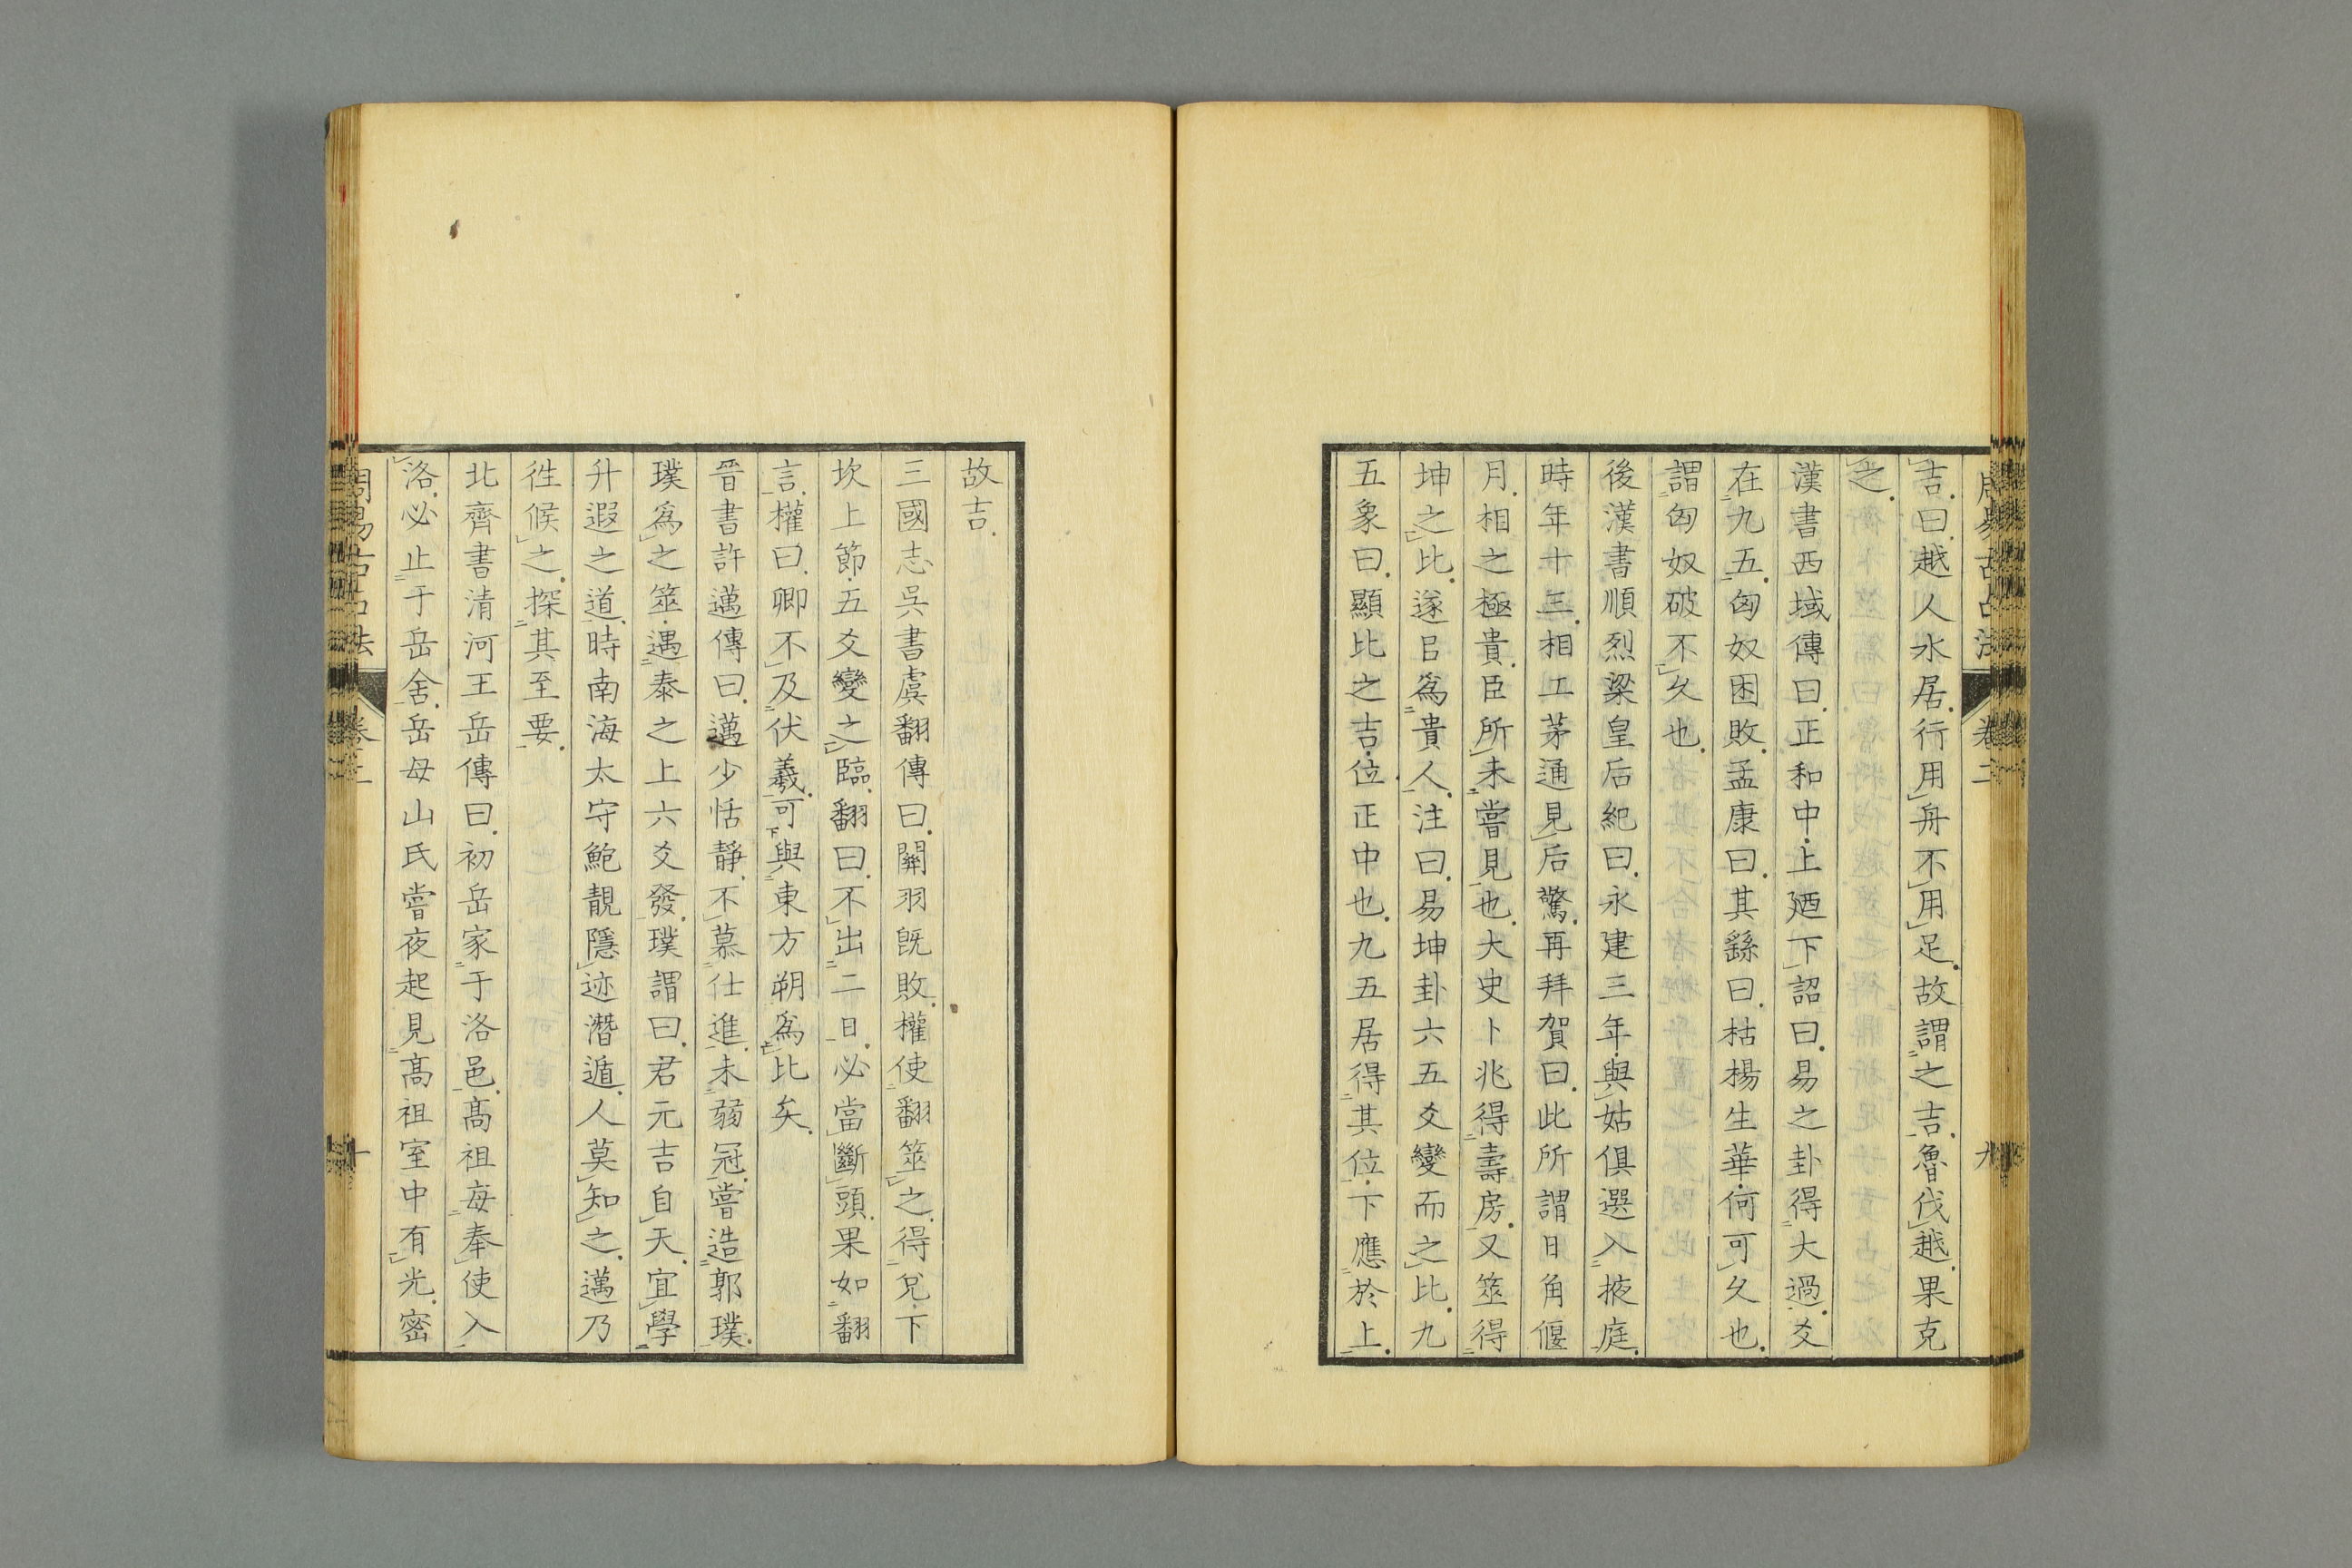 周易古占法 卷二 九
吉曰越人水居行用舟不用足故謂之吉魯伐越果克
之
漢書西域傳曰正和中上廼下詔曰易之卦得大過爻
在九五匈奴困敗孟康曰其繇曰枯楊生華何可久也
謂匈奴破不久也
後漢書順烈梁皇后紀曰永建三年與姑俱選入掖庭
時年十三相工茅通見后驚再拜賀曰此所謂日角偃
月相之極貴臣所未嘗見也大史卜兆得壽房又筮得
坤之比遂㠯爲貴人注曰易坤卦六五爻變而之比九
五象曰顯比之吉位正中也九五居得其位下應於上
故吉
三國志吳書虞翻傳曰關羽旣敗權使翻筮之得兌下
坎上節五爻變之臨翻曰不出二日必當斷頭果如翻
言權曰卿不及伏羲可與東方朔爲比矣
晉書許邁傳曰邁少恬靜不慕仕進未弱冠嘗造郭璞
璞爲之筮遇泰之上六爻發璞謂曰君元吉自天宜學
升遐之道時南海太守鮑靚隱迹潛遁人莫知之邁乃
徃候之探其至要
北齊書清河王岳傳曰初岳家于洛邑髙祖每奉使入
洛必止于岳舍岳母山氏嘗夜起見髙祖室中有光密
周易古占法 卷二 十